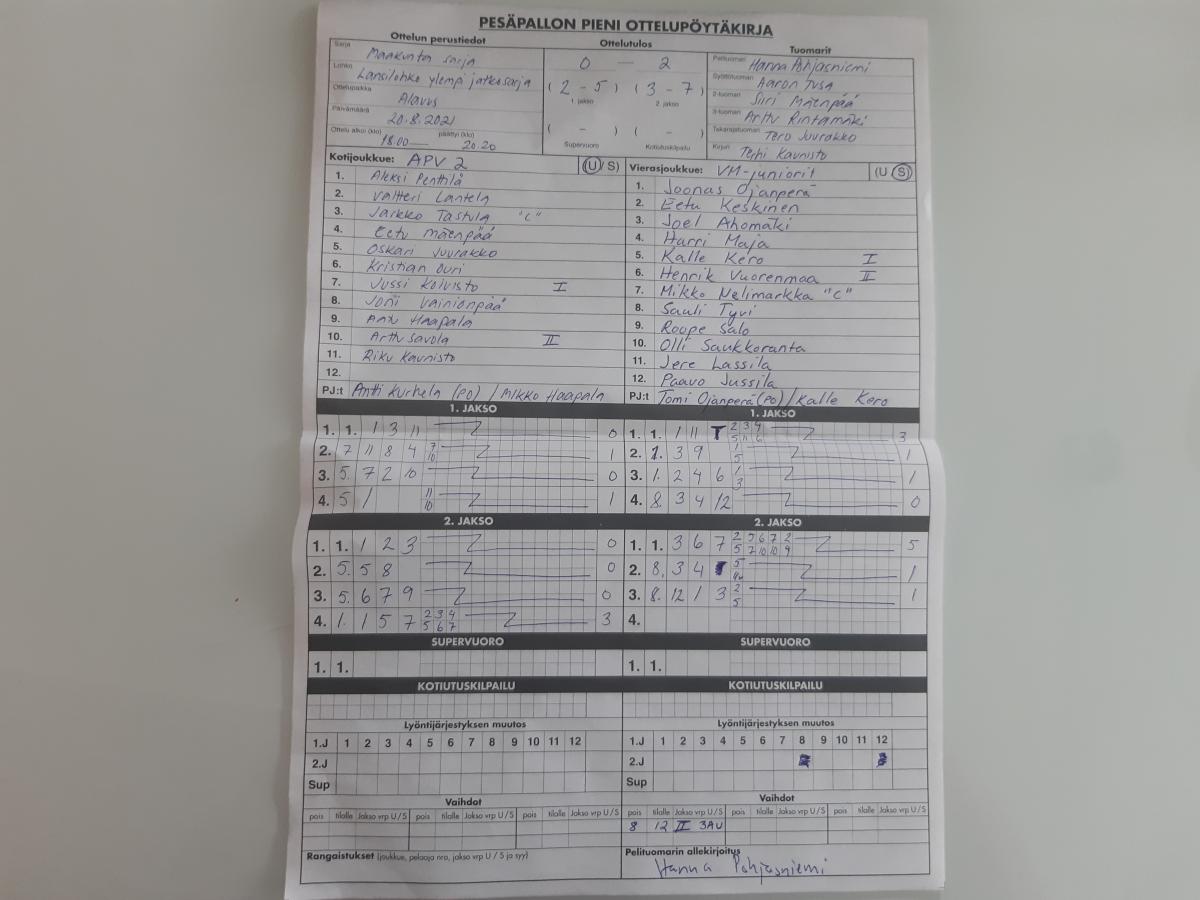 PESÄPALLON PIENI OTTELUPÖYTÄKIRJA
Ottelun perustiedot
Ottelutulos
Tuomarit
Sarja Maakunta sarja
Lohko Länsilohko ylempi jatkosarja
Ottelupaikka Alavus
Päivämäärä 20.8.2021
Ottelu alkoi (klo) 18.00 päättyi (klo) 20.20
0 — 2
(2 - 5) (3 - 7)
1. jakso 2. jakso
( - ) ( - )
Supervuoro Kotiutuskilpailu
Pelituomari Hanna Pohjasniemi
Syöttötuomari Aaron Tusa
2-tuomari Siiri Mäenpää
3-tuomari Arttu Rintamäki
Takarajatuomari Tero Juurakko
Kirjuri Terhi Kaunisto
Kotijoukkue: APV 2 (U/S)
1. Aleksi Penttilä
2. Valtteri Lantela
3. Jarkko Tastula "C"
4. Eetu Mäenpää
5. Oskari Juurakko
6. Kristian Ouri
7. Jussi Koivisto I
8. Joni Vainionpää
9. Antti Haapala
10. Arttu Savola II
11. Riku Kaunisto
12.
PJ:t Antti Kurhela (PO) / Mikko Haapala
Vierasjoukkue: VM-juniorit (U S)
1. Joonas Ojanperä
2. Eetu Keskinen
3. Joel Ahomäki
4. Harri Maja
5. Kalle Kero I
6. Henrik Vuorenmaa II
7. Mikko Nelimarkka "C"
8. Sauli Tyvi
9. Roope Salo
10. Olli Saukkoranta
11. Jere Lassila
12. Paavo Jussila
PJ:t Tomi Ojanperä (PO) / Kalle Kero
1. JAKSO
1. 1. 1 3 11 0
2. 7 11 8 4 7 10 1
3. 5. 7 2 10 0
4. 5 1 11 10 1
1. JAKSO
1. 1. 1 11 T 2 3 4 5 11 6 3
2. 1. 3 9 1 5 1
3. 1. 2 4 6 1 3 1
4. 8. 3 4 12 0
2. JAKSO
1. 1. 1 2 3 0
2. 5. 5 8 0
3. 5. 6 7 9 0
4. 1. 1 5 7 2 3 4 5 6 7 3
2. JAKSO
1. 1. 3 6 7 2 5 6 7 2 5 7 10 10 9 5
2. 8. 3 4 5 1
3. 8. 12 1 3 2 5 1
4.
SUPERVUORO
1. 1.
SUPERVUORO
1. 1.
KOTIUTUSKILPAILU
KOTIUTUSKILPAILU
Lyöntijärjestyksen muutos
1.J 1 2 3 4 5 6 7 8 9 10 11 12
2.J
Sup
Lyöntijärjestyksen muutos
1.J 1 2 3 4 5 6 7 8 9 10 11 12
2.J
Sup
Vaihdot
pois tilalle Jakso vrp U/S pois tilalle Jakso vrp U/S pois tilalle Jakso vrp U/S
Vaihdot
pois tilalle Jakso vrp U/S pois tilalle Jakso vrp U/S pois tilalle Jakso vrp U/S
8 12 II 3AU
Rangaistukset (joukkue, pelaaja nro, jakso vrp U/S ja syy)
Pelituomarin allekirjoitus
Hanna Pohjasniemi